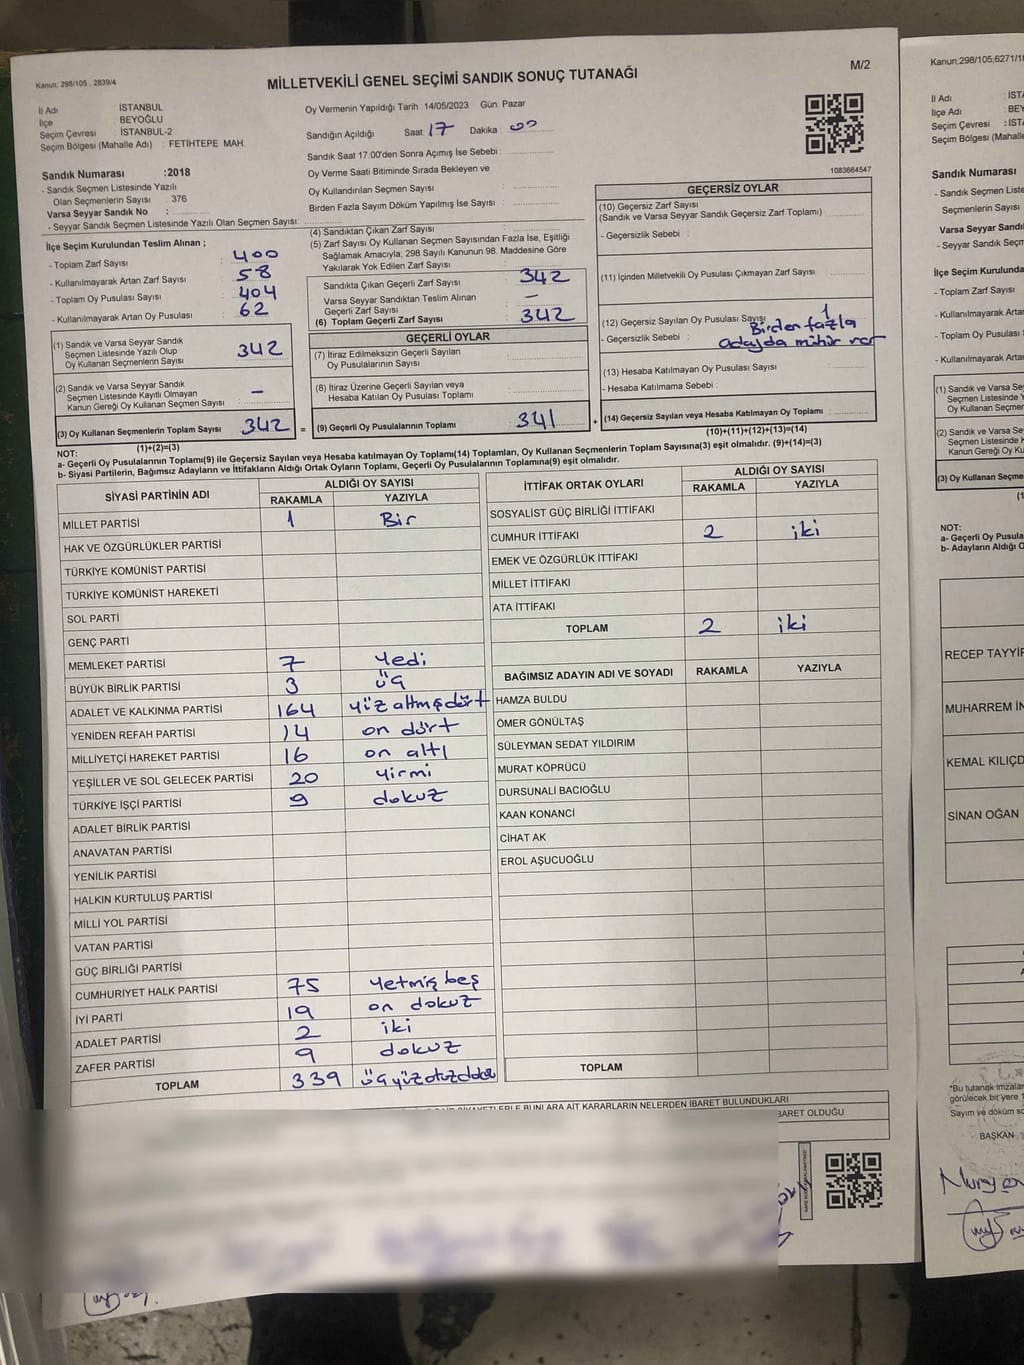 Kanun: 298/105 , 2839/4
MİLLETVEKİLİ GENEL SEÇİMİ SANDIK SONUÇ TUTANAĞI
M/2
İl Adı : İSTANBUL
İlçe : BEYOĞLU
Seçim Çevresi : İSTANBUL-2
Seçim Bölgesi (Mahalle Adı) : FETİHTEPE MAH.
Oy Vermenin Yapıldığı Tarih 14/05/2023 Gün: Pazar
Sandığın Açıldığı Saat 17 Dakika : 00
Sandık Saat 17:00'den Sonra Açımış İse Sebebi :
Oy Verme Saati Bitiminde Sırada Bekleyen ve
Oy Kullandırılan Seçmen Sayısı :
Birden Fazla Sayım Döküm Yapılmış İse Sayısı :
1083664547
Sandık Numarası :2018
- Sandık Seçmen Listesinde Yazılı
Olan Seçmenlerin Sayısı : 376
Varsa Seyyar Sandık No :
- Seyyar Sandık Seçmen Listesinde Yazılı Olan Seçmen Sayısı:
İlçe Seçim Kurulundan Teslim Alınan ;
- Toplam Zarf Sayısı : 400
- Kullanılmayarak Artan Zarf Sayısı : 58
- Toplam Oy Pusulası Sayısı : 404
- Kullanılmayarak Artan Oy Pusulası : 62
(1) Sandık ve Varsa Seyyar Sandık
Seçmen Listesinde Yazılı Olup
Oy Kullanan Seçmenlerin Sayısı : 342
(2) Sandık ve Varsa Seyyar Sandık
Seçmen Listesinde Kayıtlı Olmayan
Kanun Gereği Oy Kullanan Seçmen Sayısı : –
(3) Oy Kullanan Seçmenlerin Toplam Sayısı : 342 =
(1)+(2)=(3)
(4) Sandıktan Çıkan Zarf Sayısı :
(5) Zarf Sayısı Oy Kullanan Seçmen Sayısından Fazla İse, Eşitliği
Sağlamak Amacıyla; 298 Sayılı Kanunun 98. Maddesine Göre
Yakılarak Yok Edilen Zarf Sayısı :
Sandıkta Çıkan Geçerli Zarf Sayısı : 342
Varsa Seyyar Sandıktan Teslim Alınan
Geçerli Zarf Sayısı : –
(6) Toplam Geçerli Zarf Sayısı : 342
GEÇERLİ OYLAR
(7) İtiraz Edilmeksizin Geçerli Sayılan
Oy Pusulalarının Sayısı :
(8) İtiraz Üzerine Geçerli Sayılan veya
Hesaba Katılan Oy Pusulası Toplamı :
(9) Geçerli Oy Pusulalarının Toplamı : 341 +
GEÇERSİZ OYLAR
(10) Geçersiz Zarf Sayısı
(Sandık ve Varsa Seyyar Sandık Geçersiz Zarf Toplamı) :
- Geçersizlik Sebebi :
(11) İçinden Milletvekili Oy Pusulası Çıkmayan Zarf Sayısı :
(12) Geçersiz Sayılan Oy Pusulası Sayısı : 1
- Geçersizlik Sebebi : Birden fazla
adayda mühür var
(13) Hesaba Katılmayan Oy Pusulası Sayısı :
- Hesaba Katılmama Sebebi :
(14) Geçersiz Sayılan veya Hesaba Katılmayan Oy Toplamı :
(10)+(11)+(12)+(13)=(14)
NOT:
a- Geçerli Oy Pusulalarının Toplamı(9) ile Geçersiz Sayılan veya Hesaba katılmayan Oy Toplam(14) Toplamları, Oy Kullanan Seçmenlerin Toplam Sayısına(3) eşit olmalıdır. (9)+(14)=(3)
b- Siyasi Partilerin, Bağımsız Adayların ve İttifakların Aldığı Ortak Oyların Toplamı, Geçerli Oy Pusulalarının Toplamına(9) eşit olmalıdır.
SİYASİ PARTİNİN ADI ALDIĞI OY SAYISI
RAKAMLA YAZIYLA
MİLLET PARTİSİ 1 Bir
HAK VE ÖZGÜRLÜKLER PARTİSİ
TÜRKİYE KOMÜNİST PARTİSİ
TÜRKİYE KOMÜNİST HAREKETİ
SOL PARTİ
GENÇ PARTİ
MEMLEKET PARTİSİ 7 yedi
BÜYÜK BİRLİK PARTİSİ 3 üç
ADALET VE KALKINMA PARTİSİ 164 yüz altmışdört
YENİDEN REFAH PARTİSİ 14 on dört
MİLLİYETÇİ HAREKET PARTİSİ 16 on altı
YEŞİLLER VE SOL GELECEK PARTİSİ 20 yirmi
TÜRKİYE İŞÇİ PARTİSİ 9 dokuz
ADALET BİRLİK PARTİSİ
ANAVATAN PARTİSİ
YENİLİK PARTİSİ
HALKIN KURTULUŞ PARTİSİ
MİLLİ YOL PARTİSİ
VATAN PARTİSİ
GÜÇ BİRLİĞİ PARTİSİ
CUMHURİYET HALK PARTİSİ 75 yetmiş beş
İYİ PARTİ 19 on dokuz
ADALET PARTİSİ 2 iki
ZAFER PARTİSİ 9 dokuz
TOPLAM 339
İTTİFAK ORTAK OYLARI ALDIĞI OY SAYISI
RAKAMLA YAZIYLA
SOSYALİST GÜÇ BİRLİĞİ İTTİFAKI
CUMHUR İTTİFAKI 2 iki
EMEK VE ÖZGÜRLÜK İTTİFAKI
MİLLET İTTİFAKI
ATA İTTİFAKI
TOPLAM 2 iki
BAĞIMSIZ ADAYIN ADI VE SOYADI RAKAMLA YAZIYLA
HAMZA BULDU
ÖMER GÖNÜLTAŞ
SÜLEYMAN SEDAT YILDIRIM
MURAT KÖPRÜCÜ
DURSUNALİ BACIOĞLU
KAAN KONANCİ
CİHAT AK
EROL AŞUCUOĞLU
TOPLAM
BUNLARA AİT KARARLARIN NELERDEN İBARET BULUNDUKLARI
BARET OLDUĞU
Kanun:298/105;6271/1
İl Adı : İST
İlçe Adı : BEY
Seçim Çevresi : İST
Seçim Bölgesi (Mahalle
Sandık Numarası
- Sandık Seçmen Liste
Seçmenlerin Sayısı
Varsa Seyyar Sandı
- Seyyar Sandık Seçm
İlçe Seçim Kurulunda
- Toplam Zarf Sayısı
- Kullanılmayarak Arta
- Toplam Oy Pusulası
- Kullanılmayarak Arta
(1) Sandık ve Varsa Se
Seçmen Listesinde
Oy Kullanan Seçme
(2) Sandık ve Varsa Se
Seçmen Listesinde
Kanun Gereği Oy Ku
(3) Oy Kullanan Seçme
NOT:
a- Geçerli Oy Pusula
b- Adayların Aldığı O
RECEP TAYYİP
MUHARREM İN
KEMAL KILIÇD
SİNAN OĞAN
*Bu tutanak imzalan
görülecek bir yere 1
Sayım ve döküm so
BAŞKAN